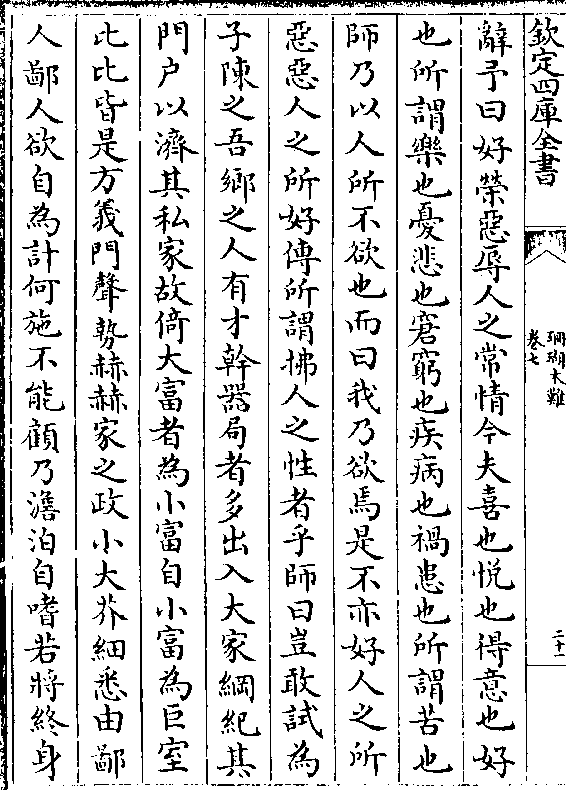 欽定四庫全書
珊瑚木難
卷七
二十一
辭予曰好榮惡辱人之常情今夫喜也悅也得意也好
也所謂樂也憂悲也窘窮也疾病也禍患也所謂苦也
師乃以人所不欲也而曰我乃欲焉是不亦好人之所
惡惡人之所好傳所謂拂人之性者乎師曰豈敢試為
子陳之吾鄉之人有才幹器局者多出入大家綱紀其
門户以濟其私家故倚大富者為小富自小富為巨室
比比皆是方義門聲勢赫赫家之政小大芥細悉由鄙
人鄙人欲自為計何施不能顧乃澹泊自嗜若將終身